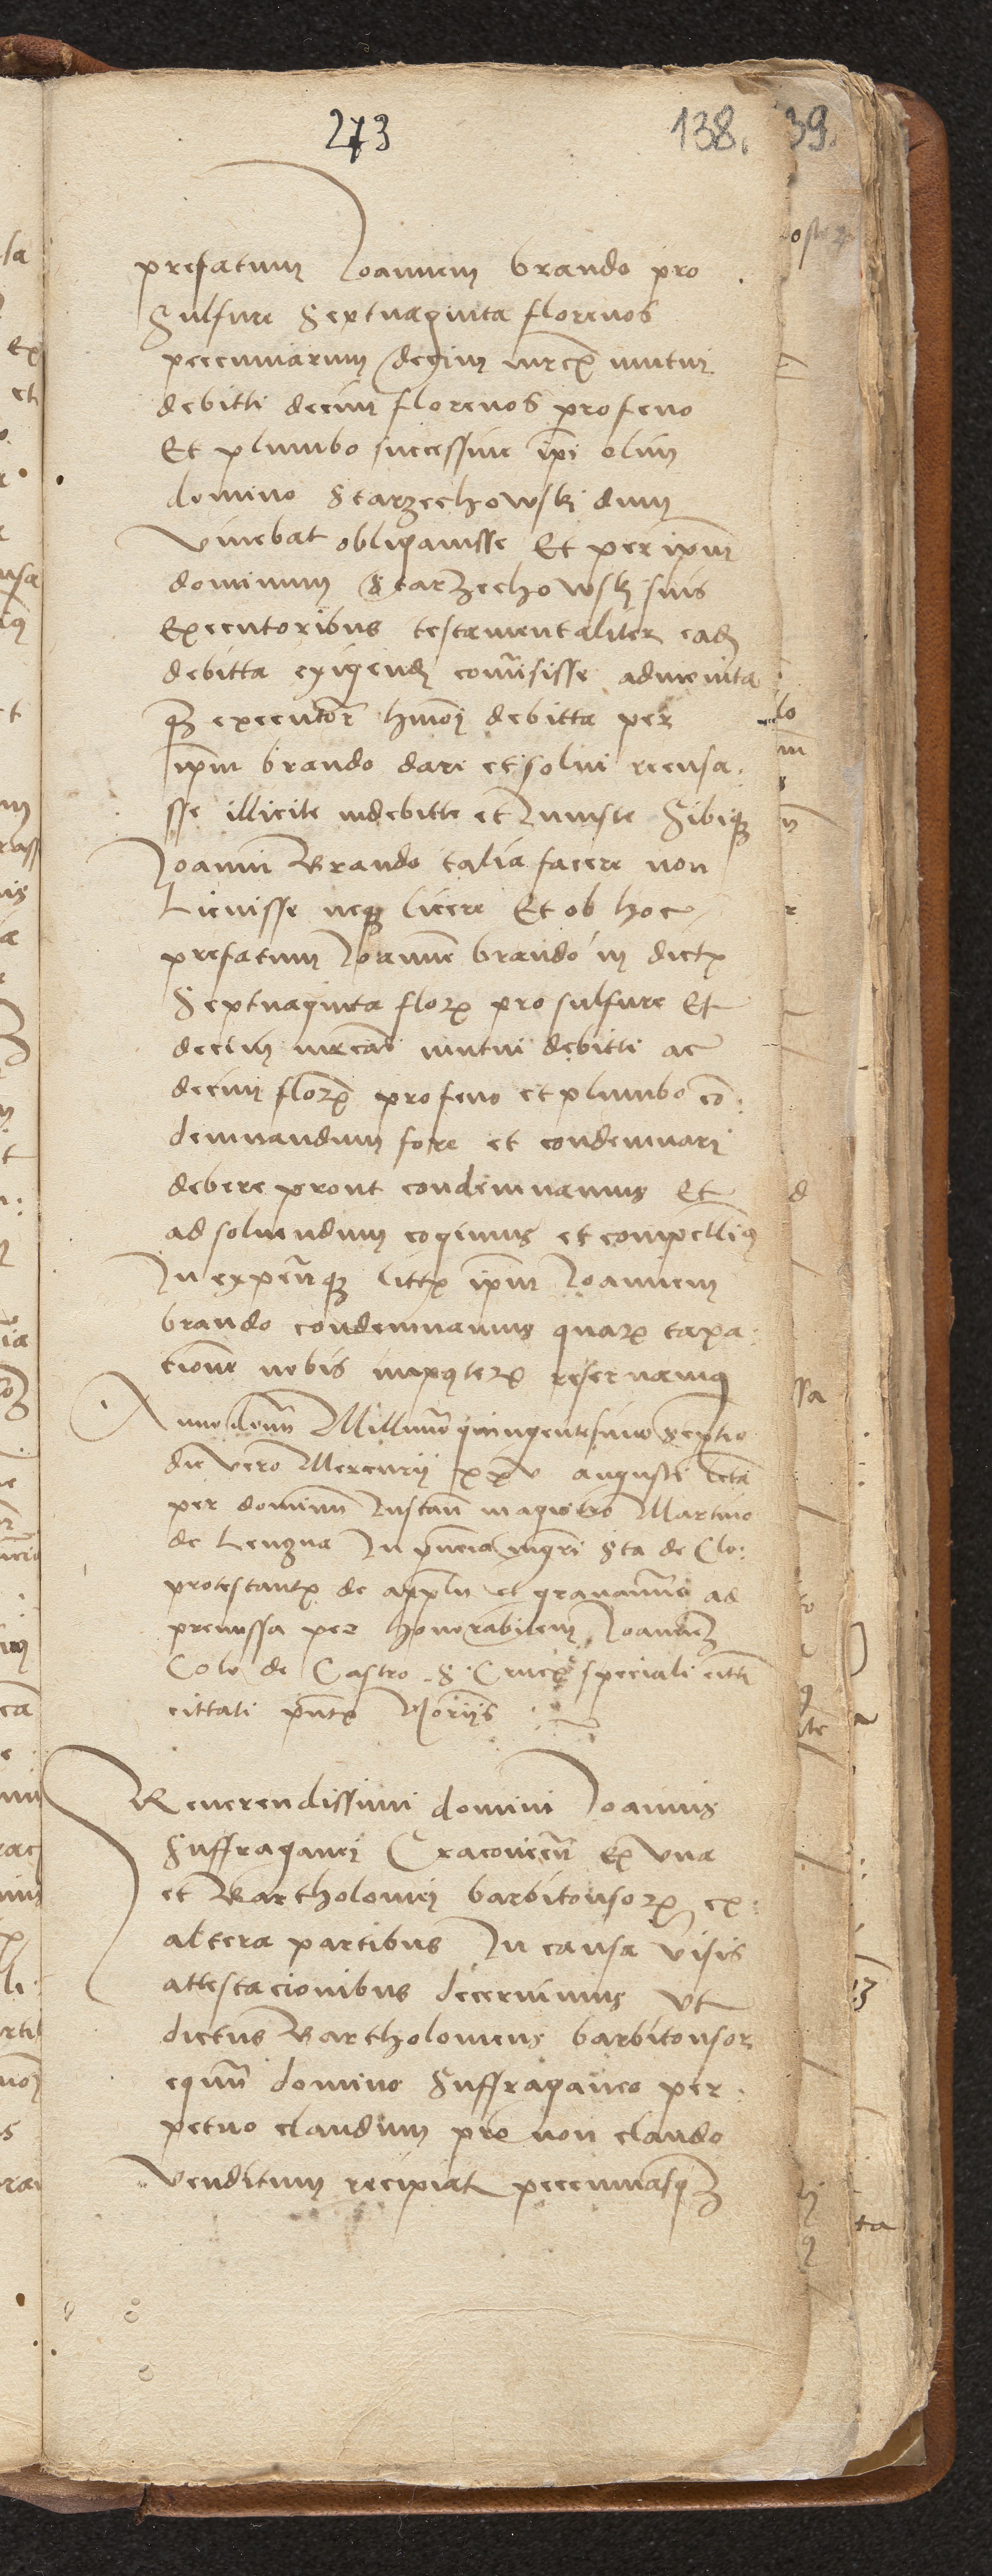 273 138. 39.
prefatum Joannem brando pro
Sulfure Septuaginta florenos
peccuniarum decim mrcas mutui
debitti decim florenos pro feno
Et plumbo successive ipi olim
domino Starzechowski dum
Vivebat obligavisse Et per ipum
dominum Starzechowski suis
Executoribus testamentaliter ead
debitta exigend comisisse adinventa
q executor hmoi debitta per
ipm brando dari et solvi recusa
sse illicite indebitte et Iniuste Sibiq
Joanni Brando talia facere non
Licuisse neq licere Et ob hoc
prefatum Joanne brando in dictis
Septuaginta flor pro sulfure Et
decim mrcas mutui debitti ac
decim flor pro feno et plumbo co:
demnandum fore et condemnari
debere prout condemnamus Et
ad solvendum cogimus et compellim
In expensq litis ipm Joannem
brando condemnamus quar taxa
tione nobis imposter reservamus
Anno domi Millimo quingentesimo septio
die vero Mercurij xxv augusti lcta
per dominum Instan magistro Martino
de Lengna In pncia mgri Sta de Clo:
protestant de appln et gravamine ad
premissa per honorabilem Joannem
Colo de Castro S. Crucis speciali citti
cittati pnt Norijs
Reverendissimi domini Joannis
Suffraganei Cracovien Ex Una
et Bartholomei barbitonsoris ex
altera partibus In causa Visis
attestacionibus decernimus Ut
dictus Bartholomeus barbitonsor
equum domino Suffraganeo per
petuo claudum pro non claudo
Venditum recipiat peccuniasq